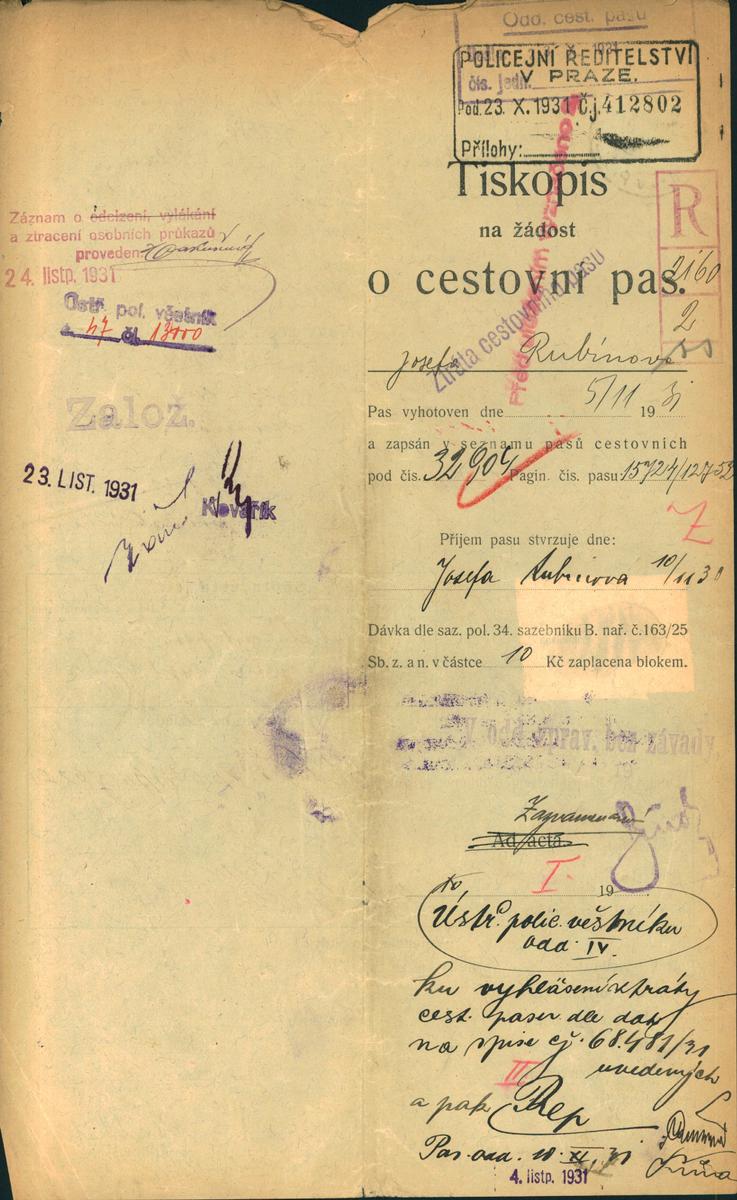 Odd. cest. pasů
čís. jedn.
POLICEJNÍ ŘEDITELSTVÍ
V PRAZE.
Pod. 23. X. 1931 Č.j. 412802
Přílohy:
Tiskopis
na žádost
o cestovní pas.
R
2160
2
Ztráta cestovního pasu
Josefa Rubínová
Pas vyhotoven dne 5/11 1931
a zapsán v seznamu pasů cestovních
pod čís. 32904 Pagin. čís. pasu 15724/12752
Z
Příjem pasu stvrzuje dne:
Josefa Rubínová 10/11 30
Dávka dle saz. pol. 34. sazebníku B. nař. č. 163/25
Sb. z. a n. v částce 10 Kč zaplacena blokem.
V odd. správ. bez závady
19
Zaznamenání
Ad acta.
I. 19
Ústř. polic. věstníku
odd. IV.
ku vyhlášení ztráty
cest. pasu dle dat
na spise čj. 68.481/31
uvedených
III
a pak Rep
Pas. odd. 10. XI. 31
4. listp. 1931
Záznam o odcizení, vylákání
a ztracení osobních průkazů
proveden
24 listp. 1931
Ústř. pol. věstník
č. 47 čl. 13000
Založ.
23. LIST. 1931
Kovařík